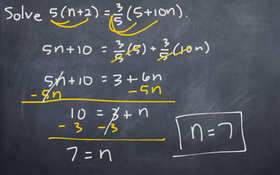 Solve 5(n+2) = 3/5 (5+10n).
5n+10 = 3/5(5) + 3/5(10n)
5n+10 = 3 + 6n
-5n -5n
10 = 3 + n
-3 -3
7 = n
n=7